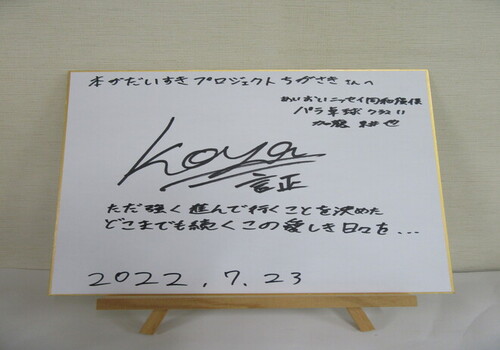 本がだいすきプロジェクトちがさきさんへ
あいおいニッセイ同和損保
パラ卓球クラス11
加藤耕也
Koya
証
ただ強く進んで行くことを決めた
どこまでも続くこの愛しき日々を...
2022.7.23